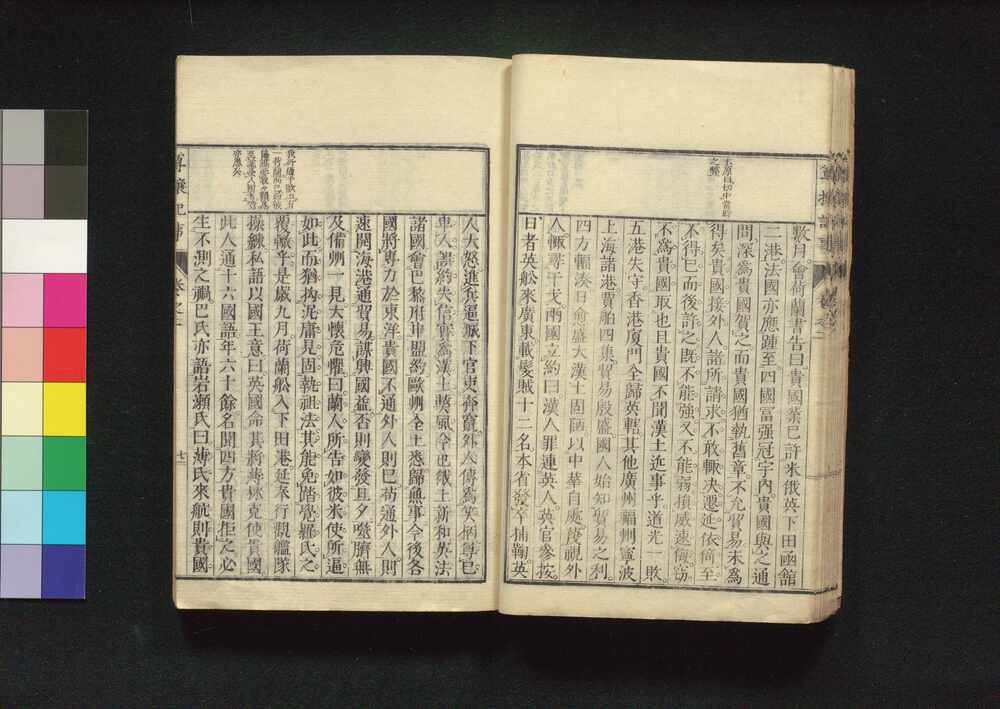 數月會荷蘭書告曰貴國業已許米俄英下田函館
二港法國亦應踵至四國富强冠宇內貴國與之通
問深爲貴國賀之而貴國猶執舊章不允貿易未爲
得矣貴國接外人諸所請求不敢輙決遷延依倚至
不得已而後許之旣不能強又不能弱損威速侮竊
不爲貴國取也且貴國不聞漢土近事乎道光一敗
五港失守香港厦門全歸英轄其他廣州福州寧波
上海諸港賈舶四集貿易殷盛國人始知貿易之利
四方輻湊日愈盛大漢土固陋以中華自處蔑視外
人輙尋干戈兩國立約曰漢人罪連英人英官參按
日者英舩來廣東載髮賊十二名本省發卒捕鞫英
人大怒進兵逼城下官吏齊寶外人傳爲笑柄尊已
卑人講約失信實爲漢土獘風今也俄土新和英法
諸國會巴黎府申盟約歐州全土悉歸無事今後各
國將專力於東洋貴國不通外人則已苟通外人則
速開海港通貿易謀興國益否則變發旦夕噬臍無
及備州一見大懐危懼曰蘭人所告如彼米使所逼
如此而猶拘泥庸見固執祖法其能免踏覺羅氏之
覆轍乎是歲九月荷蘭舩入下田港延奉行觀艦隊
操練私語以國王意曰英國命其將薄林克使貴國
此人通十六國語年六十餘名聞四方貴國拒之必
生不測之禍巴氏亦語岩瀬氏曰薄氏來航則貴國